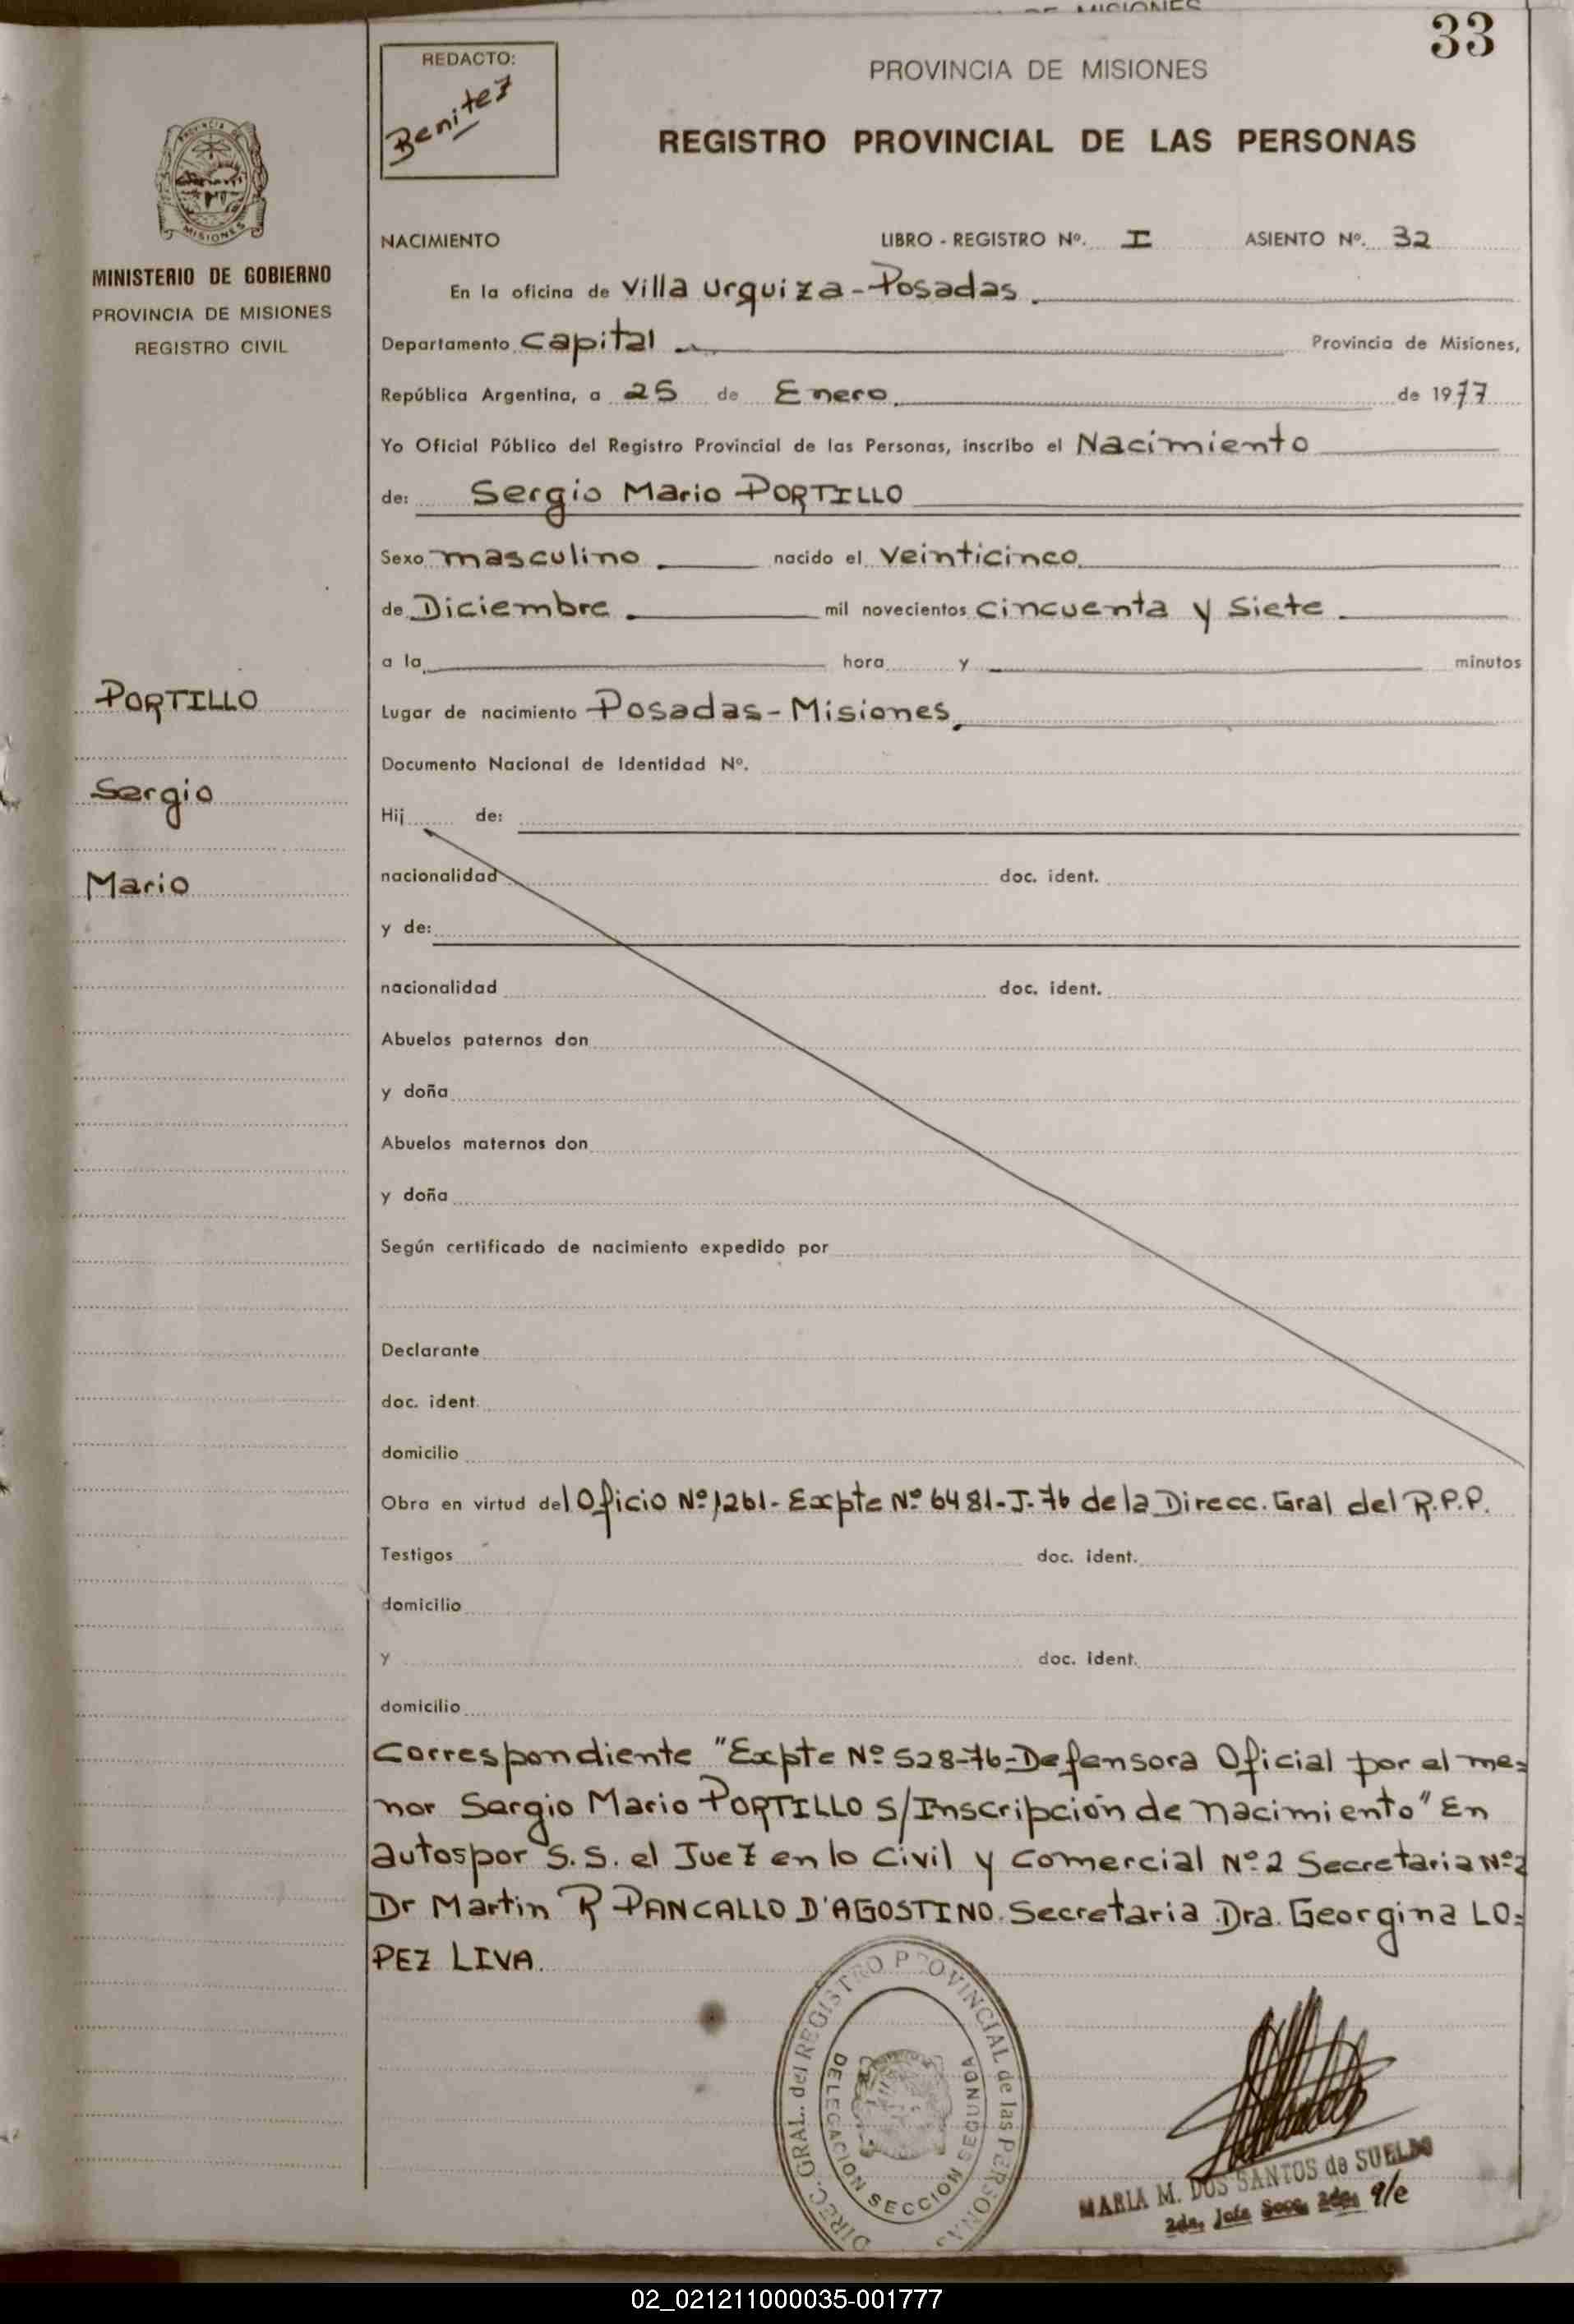 DE MISIONES
33
REDACTO:
Benitez
PROVINCIA DE MISIONES
REGISTRO PROVINCIAL DE LAS PERSONAS
PROVINCIA DE
MISIONES
MINISTERIO DE GOBIERNO
PROVINCIA DE MISIONES
REGISTRO CIVIL
PORTILLO
Sergio
Mario
NACIMIENTO LIBRO - REGISTRO Nº. I ASIENTO Nº. 32
En la oficina de Villa Urquiza-Posadas.
Departamento Capital Provincia de Misiones,
República Argentina, a 25 de Enero. de 1977
Yo Oficial Público del Registro Provincial de las Personas, inscribo el Nacimiento
de: Sergio Mario PORTILLO
Sexo masculino. nacido el veinticinco
de Diciembre. mil novecientos cincuenta y siete
a la hora y minutos
Lugar de nacimiento Posadas-Misiones.
Documento Nacional de Identidad Nº.
Hij de:
nacionalidad doc. ident.
y de:
nacionalidad doc. ident.
Abuelos paternos don
y doña
Abuelos maternos don
y doña
Según certificado de nacimiento expedido por
Declarante
doc. ident.
domicilio
Obra en virtud del Oficio Nº 1261- Expte Nº 6481-J-76 de la Direcc. Gral del R.P.P.
Testigos doc. ident.
domicilio
y doc. ident.
domicilio
Correspondiente "Expte Nº 528-76-Defensora Oficial por el me=
nor Sergio Mario PORTILLO S/Inscripción de nacimiento" En
autos por S.S. el Juez en lo Civil y Comercial Nº 2 Secretaria Nº 2
Dr Martin R PANCALLO D'AGOSTINO. Secretaria Dra. Georgina LO=
PEZ LIVA.
DIREC. GRAL. del REGISTRO PROVINCIAL de las PERSONAS
DELEGACION SECCION SEGUNDA
MARIA M. DOS SANTOS de SUELDO
2da. Jefa Secc. 2da. a/c
02_021211000035-001777